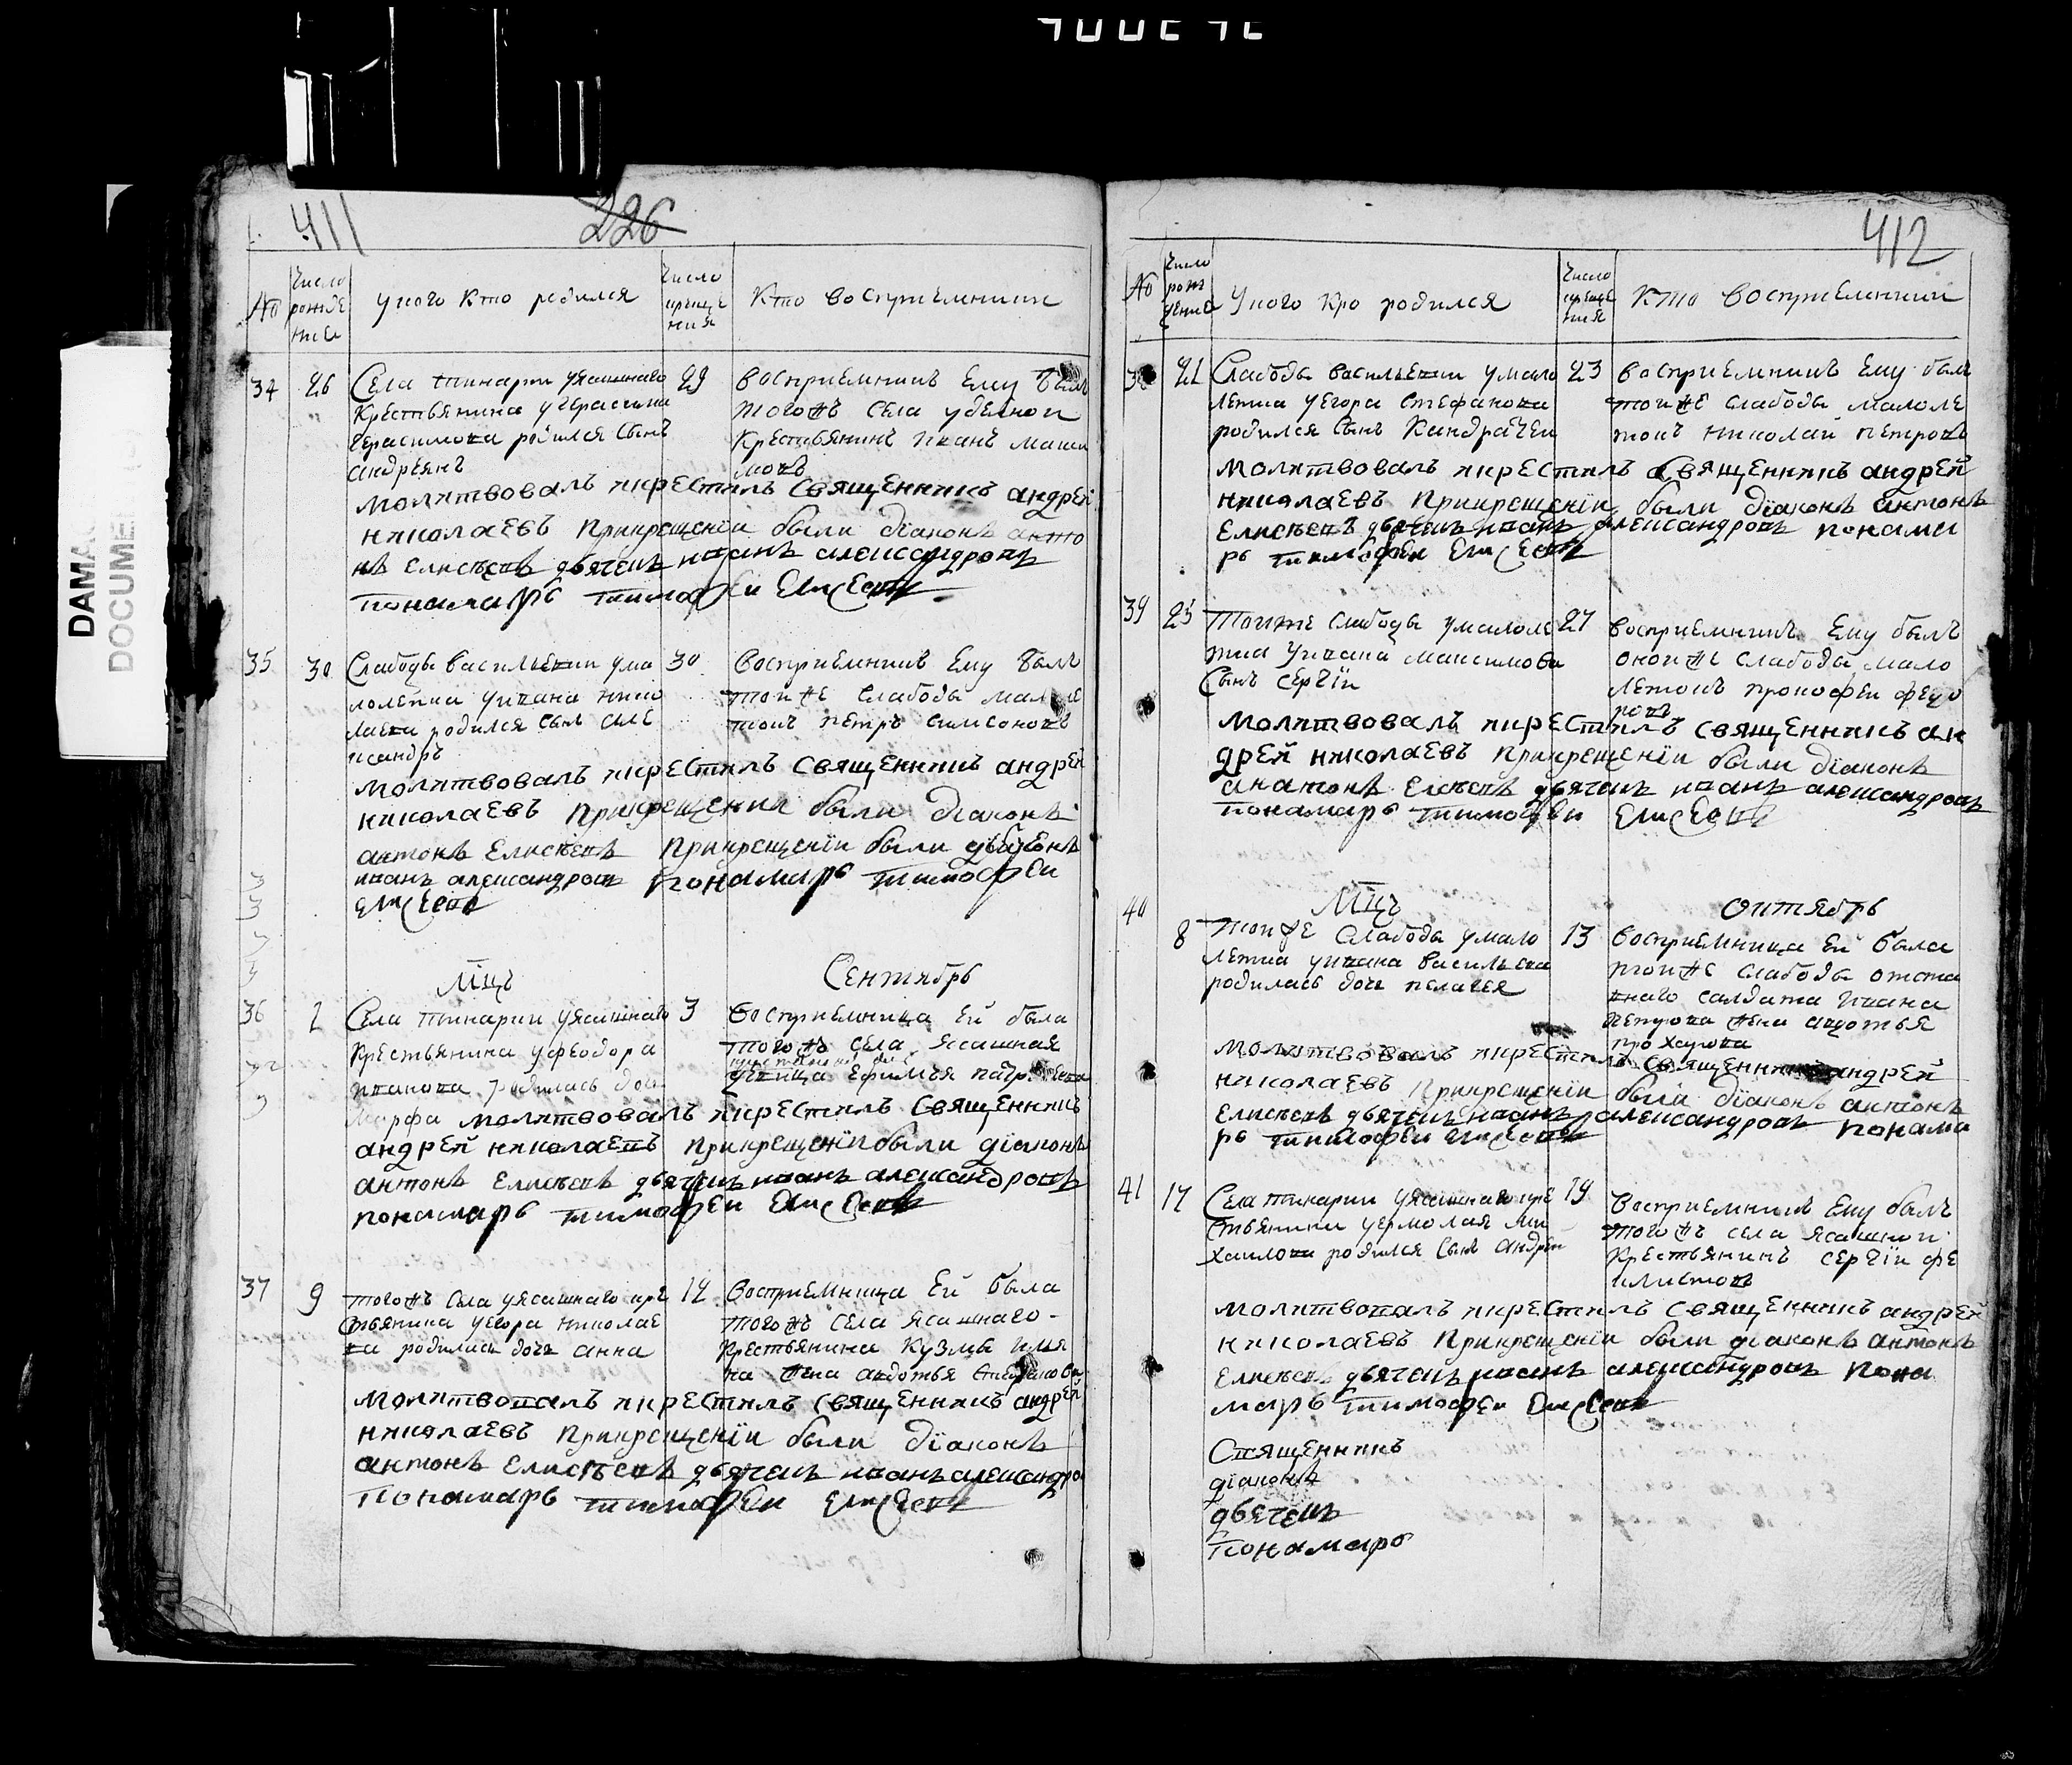 411
226
№
Число рожде ния
у кого кто родился
Число креще ния
Кто восприемники
34
26
Села тинарки уясашнаго
крестьянина угерасима
герасимова родился сынъ
андреянъ
29
восприемникъ Ему былъ
тогожъ села уделнои
крестьянинъ иванъ
молитвовалъ икрестилъ священникъ андрей
николаевъ прикрещенiи были дiаконъ анто
нъ елисѣевъ дьячекъ иванъ александровъ
понамарь тимофеи Елисеевъ
35
30
Слабоды васильевки ума
лолетка уивана нико
лаева родился сынъ але
ксандръ
30
Восприемникъ Ему былъ
тойже слабоды
петръ симоновъ
молитвовалъ икрестилъ священникъ андрей
николаевъ прикрещении были дiаконъ
антонъ елисѣевъ прикрещенiи были
иванъ александровъ понамарь тимофеи
елисеевъ
Мцъ
Сентябрь
36
2
Села тинарки уясашнаго
крестьянина уфеодора
иванова родилась дочь
марфа
3
восприемница ей была
тогожъ села ясашная
ефимья
молитвовалъ икрестилъ священникъ
андрей николаевъ прикрещенiи были дiаконъ
антонъ елисѣевъ дьячекъ иванъ александровъ
понамарь тимофеи Елисеевъ
37
9
тогожъ села уясашнаго кре
стьянина уегора николае
ва родилась дочь анна
12
Восприемница Ей была
тогожъ села ясашнаго
крестьянина Кузмы илья
на жена авдотья
молитвовалъ икрестилъ священникъ андрей
николаевъ прикрещенiи были дiаконъ
антонъ елисѣевъ дьячекъ иванъ александро
понамарь тимофеи елисеевъ
412
№
Число рож дение
Укого кро родился
Число креще ния
кто восприемники
38
21
Слабоды васильевки умало
летка уегора стефанова
родился сынъ Кандратеи
23
восприемникъ Ему былъ
тойже слабоды малоле
токъ николай петровъ
молитвовалъ икрестилъ священникъ андрей
николаевъ прикрещенiи были дiаконъ антонъ
Елисѣевъ дьячекъ иванъ александровъ понама
рь тимофеи Елисеевъ
39
25
Тойже слабоды умалоле
тка уивана максимова
сынъ сергiи
27
восприемникъ Ему былъ
онойже слабоды мало
летокъ прокофеи федо
ровъ
молитвовалъ икрестилъ священникъ ан
дрей николаевъ прикрещенiи были дiаконъ
анатонъ Елсѣевъ дьячекъ иванъ александровъ
понамарь тимофеи Елисеевъ
Мцъ
Октябрь
40
8
Тойже слабоды умало
летка уивана васильева
родилась дочь пелагея
13
восприемница ей была
тойже слабоды отста
внаго салдата ивана
петрова жена авдотья
прохарова
молитвовалъ икрестилъ священникъ андрей
николаевъ прикрещенiи были дiаконъ антонъ
елисѣевъ дьячекъ иванъ александровъ понама
рь тимофеи Елисеевъ
41
17
Села тинарки уясашнаго кре
стьянина уермолая ми
хаилова родился сынъ андреи
19
Восприемникъ Ему былъ
тогожъ села ясашнои
крестьянинъ сергiи фе
илистовъ
молитвовалъ икрестилъ священникъ андрей
николаевъ прикрещенiи были дiаконъ антонъ
елисѣевъ дьячекъ иванъ александровъ пона
марь тимофеи Елисеевъ
Священникъ
дiаконъ
дьячекъ
понамарь